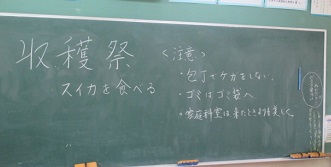 収穫祭
スイカを食べる
<注意>
・包丁でケガをしない。
・ゴミはゴミ袋へ
・家庭科室は来たときよりも美しく。